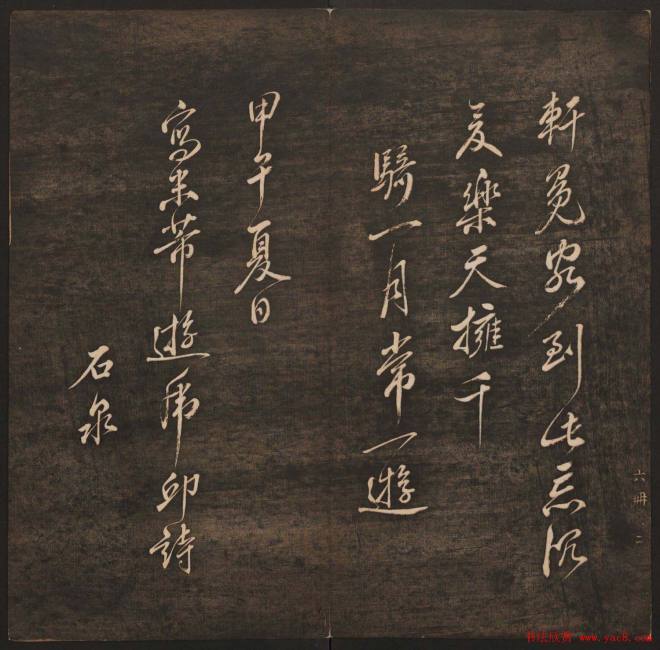 軒冕客到此忘沉
憂樂天擁千
騎一月常一遊
甲午夏日
寫米芾遊虎邱詩
石泉
六冊 二
书法欣赏 www.yac8.com